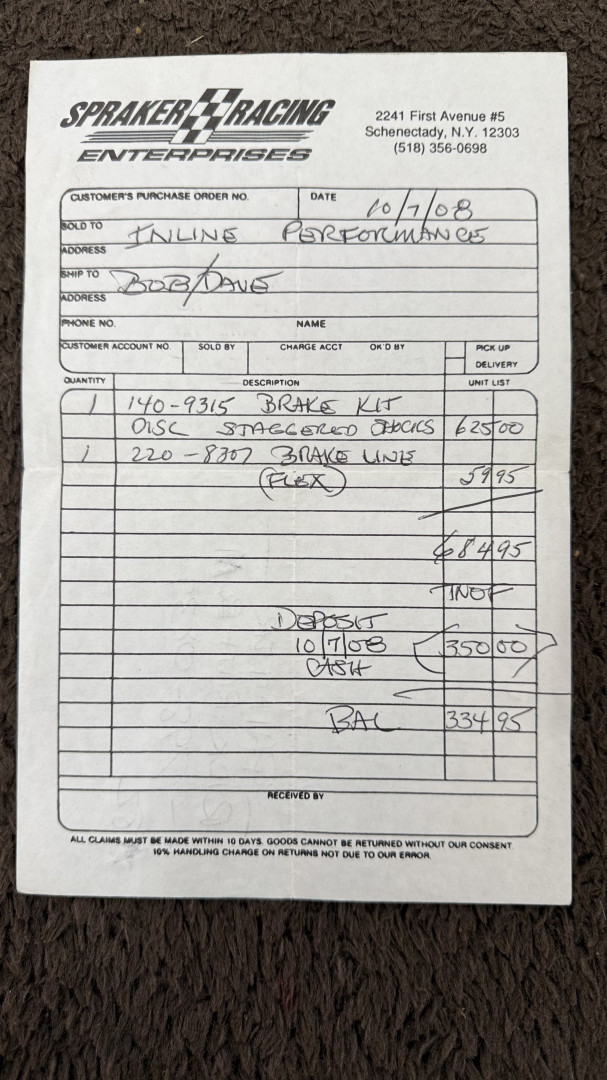 SPRAKER RACING
ENTERPRISES
2241 First Avenue #5
Schenectady, N.Y. 12303
(518) 356-0698
CUSTOMER'S PURCHASE ORDER NO. DATE 10/7/08
SOLD TO INLINE PERFORMANCE
ADDRESS
SHIP TO BOB/DAVE
ADDRESS
PHONE NO. NAME
CUSTOMER ACCOUNT NO. SOLD BY CHARGE ACCT OK'D BY PICK UP
DELIVERY
QUANTITY DESCRIPTION UNIT LIST
1 140-9315 BRAKE KIT
DISC STAGGERED SHOCKS 625 00
1 220-8307 BRAKE LINE
(FLEX) 59 95
684 95
DEPOSIT
10/7/08 (350 00)
CASH
BAL 334 95
RECEIVED BY
ALL CLAIMS MUST BE MADE WITHIN 10 DAYS. GOODS CANNOT BE RETURNED WITHOUT OUR CONSENT.
10% HANDLING CHARGE ON RETURNS NOT DUE TO OUR ERROR.